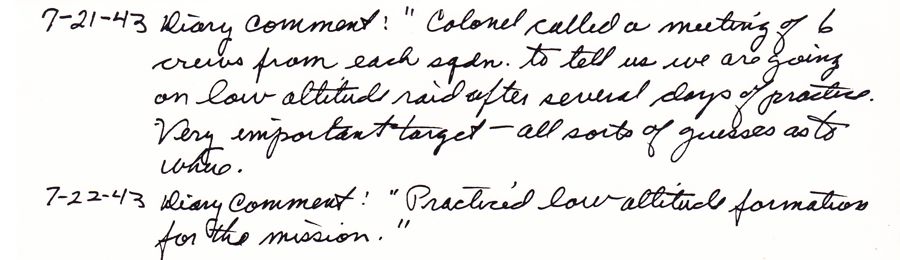 7-21-43 Diary Comment: "Colonel called a meeting of 6
crews from each sqdn. to tell us we are going
on low altitude raid after several days of practice.
Very important target - all sorts of guesses as to
where.
7-22-43 Diary Comment: "Practiced low altitude formation
for the mission."